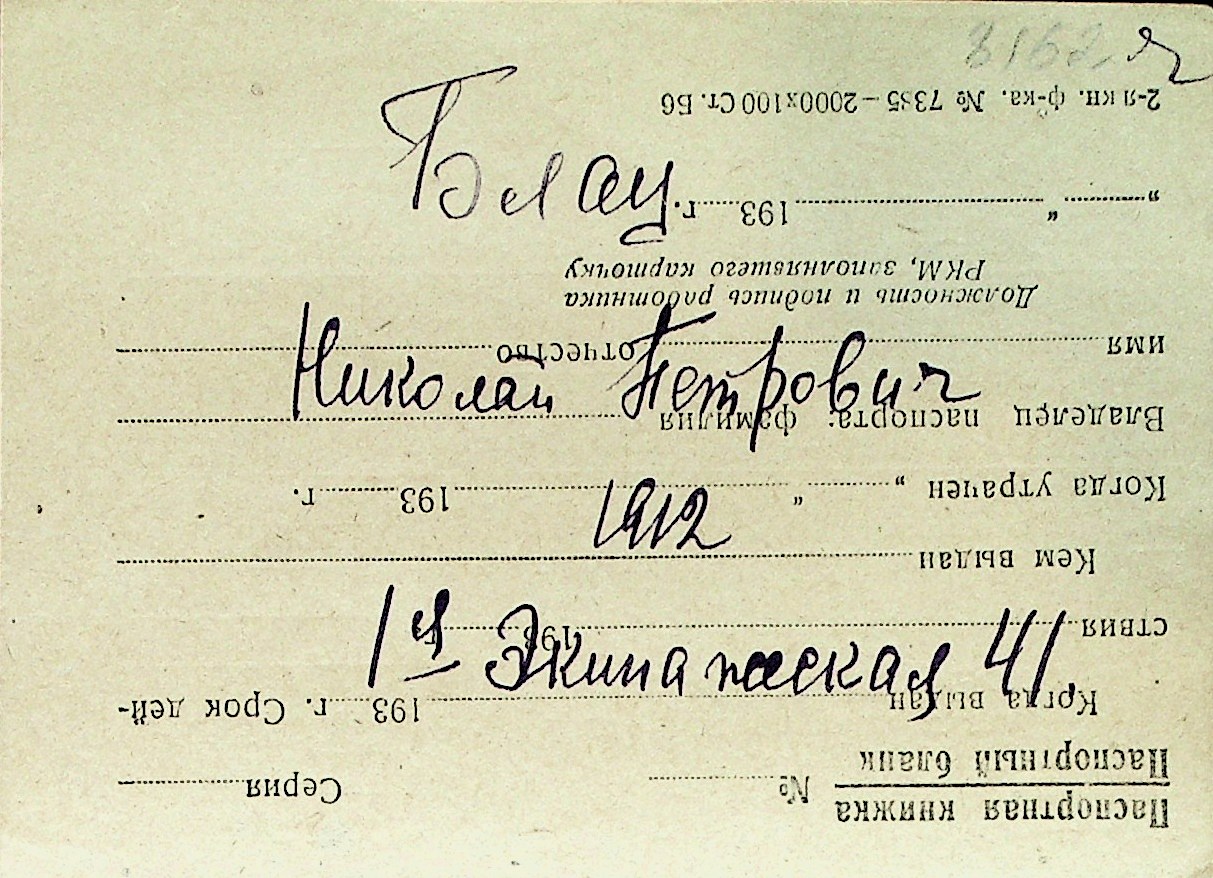 Блау
Николай Петрович
1912
1я Экипажеская 41.
Паспортная книжка
Паспортный бланк
№ Серия
Когда выдан 193 г. Срок дей-
ствия 193
Кем выдан
Когда утрачен „ “ 193 г.
Владелец паспорта: фамилия
имя отчество
Должность и подпись работника
РКМ, заполнявшего карточку
„ “ 193 г.
2-я кн. ф-ка. № 7385—2000х100 Ст. Б6